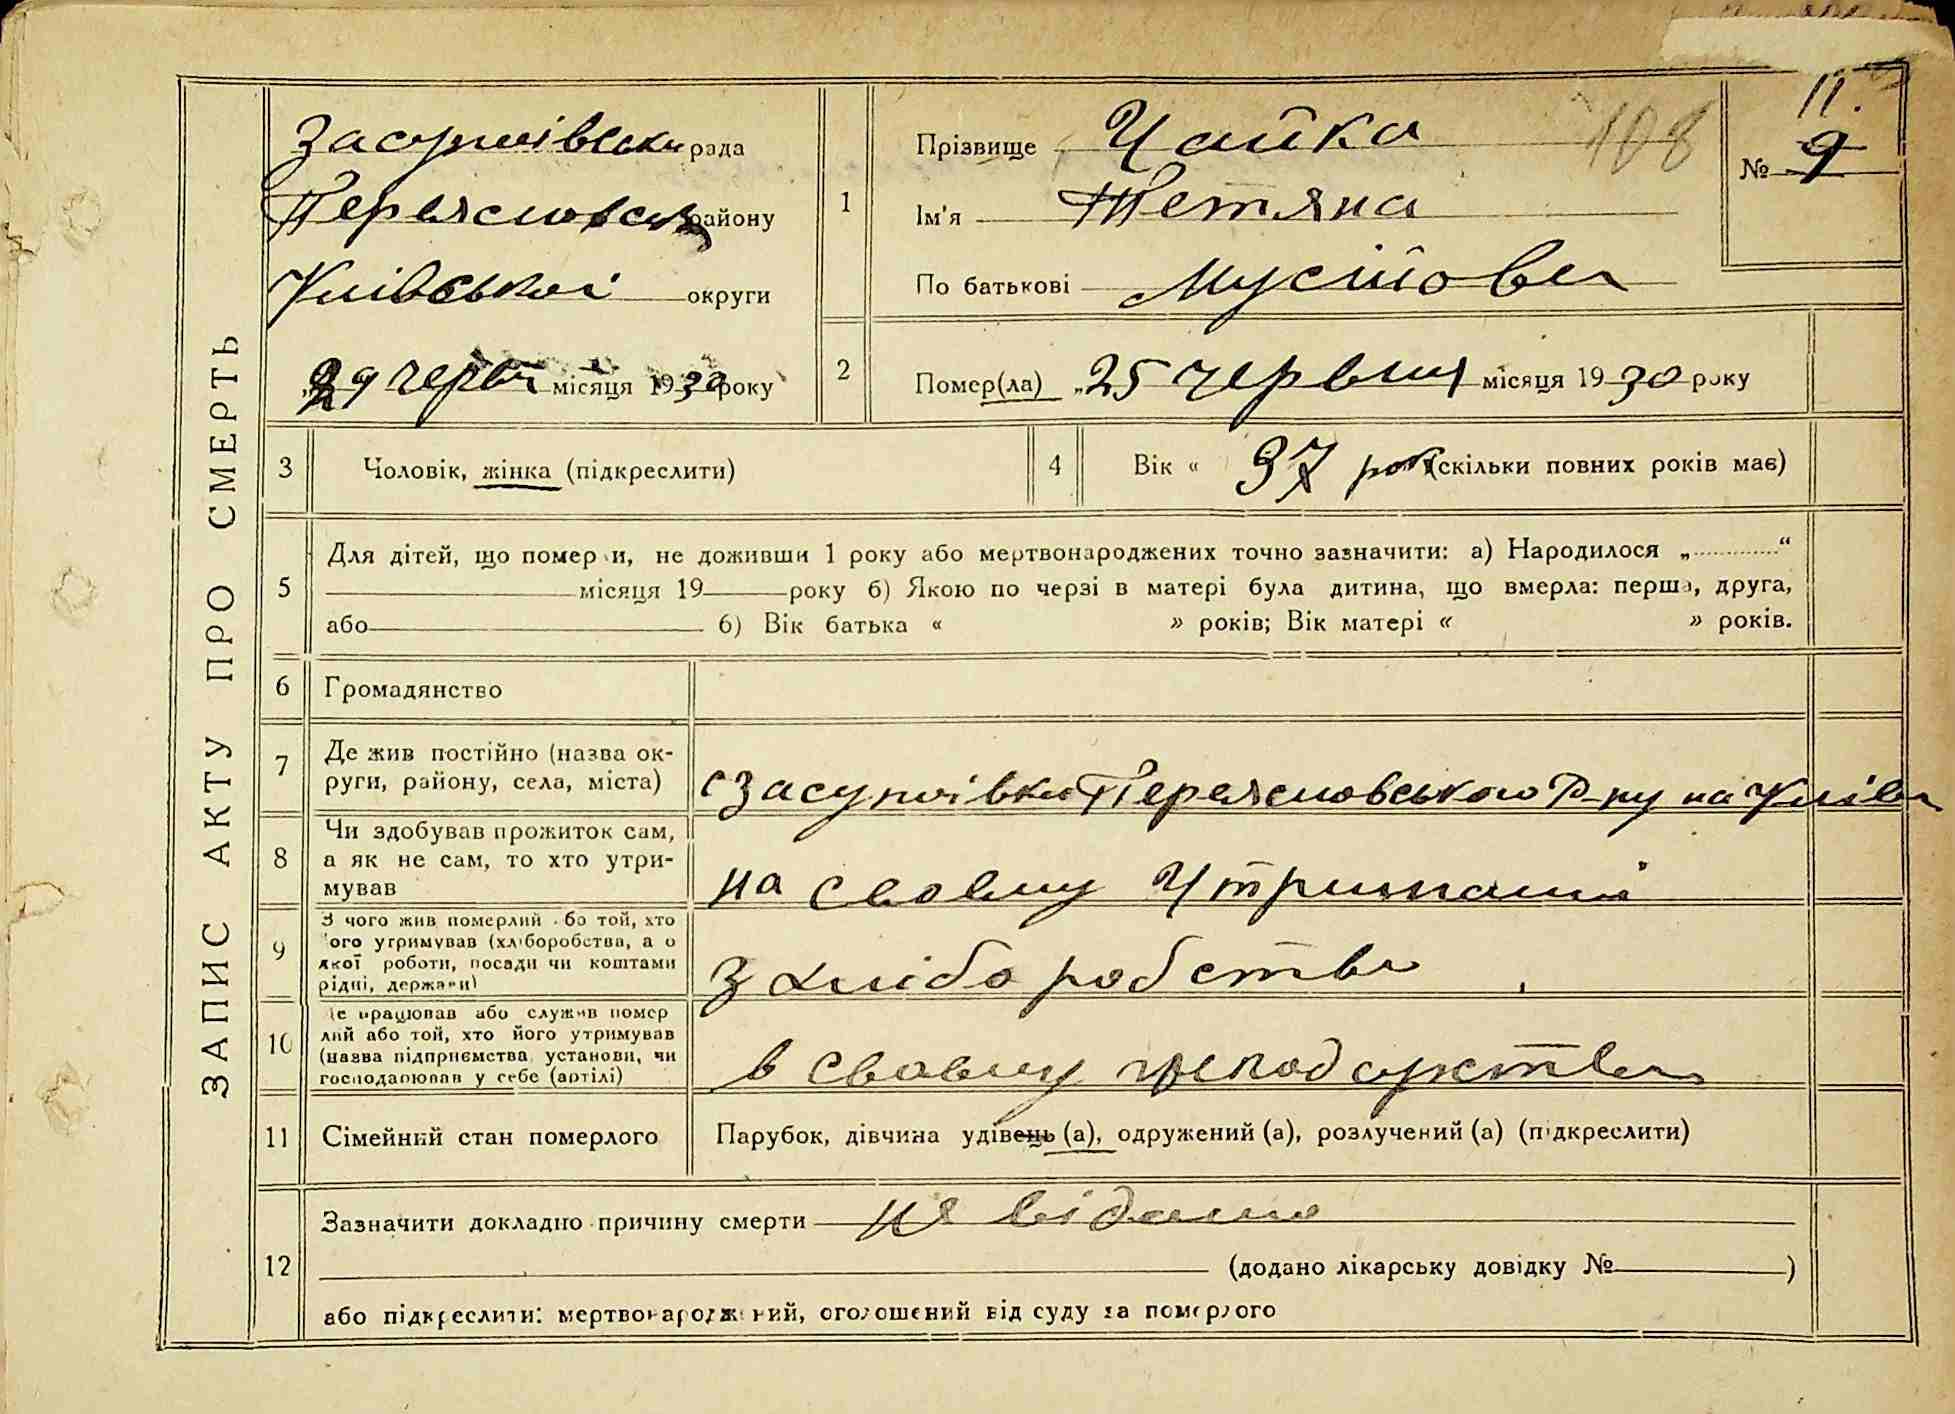 ЗАПИС АКТУ ПРО СМЕРТЬ
Засупоївська рада
Переяславськ району
Київської округи
29 черв місяця 1930 року
1
Прізвище Чайка
Ім'я Тетяна
По батькові Мусійовна
108
11.
№ 9
2
Помер(ла) „25 червня місяця 1930 року
3
Чоловік, жінка (підкреслити)
4
Вік « 37 рок (скільки повних років має)
5
Для дітей, що померли, не доживши 1 року або мертвонароджених точно зазначити: а) Народилося „ “
місяця 19 року б) Якою по черзі в матері була дитина, що вмерла: перша, друга,
або б) Вік батька « » років; Вік матері « » років.
6
Громадянство
7
Де жив постійно (назва ок-
руги, району, села, міста)
с Засупоївка Переяславського Р-ну на Київ
8
Чи здобував прожиток сам,
а як не сам, то хто утри-
мував
на своему Утриманні
9
З чого жив померлий або той, хто
його утримував (хліборобства, а о
якої роботи, посади чи коштами
рідні, держави)
З хліборобства
10
Де працював або служив помер
лий або той, хто його утримував
(назва підприємства установи, чи
господарював у себе (артілі)
в своему господарстві
11
Сімейний стан померлого
Парубок, дівчина удівець (а), одружений (а), розлучений (а) (підкреслити)
12
Зазначити докладно причину смерти не відома
(додано лікарську довідку № )
або підкреслити: мертвонароджений, оголошений від суду за померлого